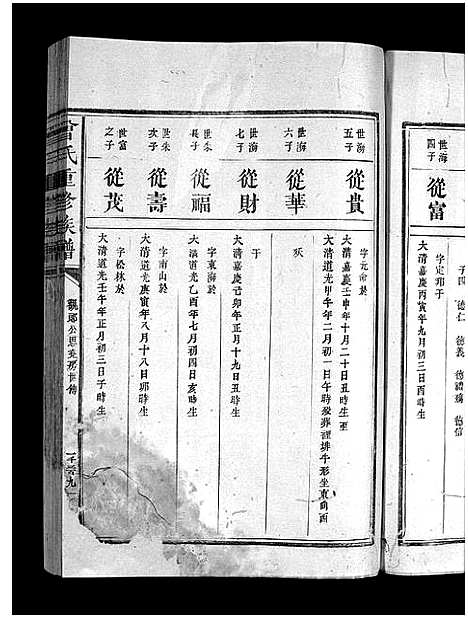 世海
四子
從富
字定邦于
大清嘉慶丙寅年九月初三日酉時生
子四 德仁 德義 德禮 德信
世海
五子
從貴
字元命於
大清嘉慶壬申年十月二十日丑時生至
大清道光甲午年二月初一日午時歿葬裡排牛形坐東向酉
世海
六子
從華
歿
世海
七子
從財
于
大清嘉慶己卯年正月十九日丑時生
世朱
長子
從福
字東海於
大清道光乙酉年七月初四日亥時生
世朱
次子
從壽
字南山於
大清道光庚寅年八月十八日卯時生
世富
之子
從茂
字松林於
大清道光壬午年正月初三日子時生
曾氏重修族譜